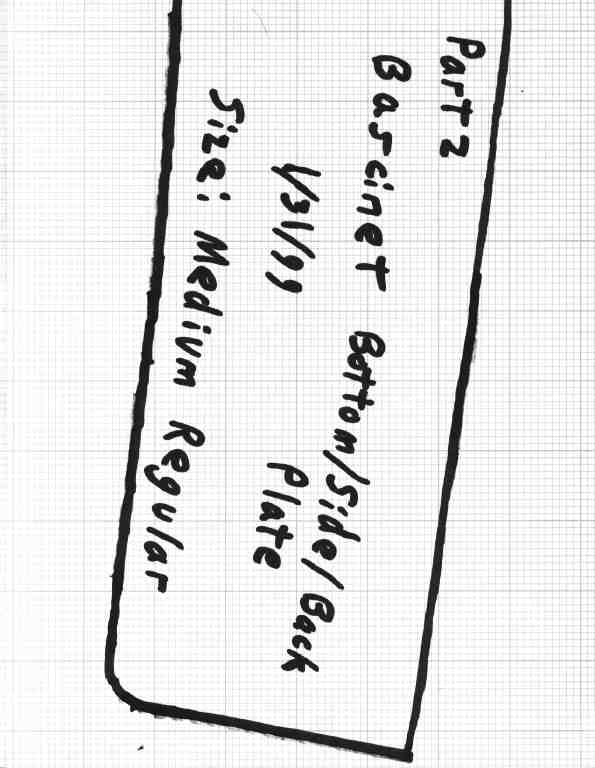 Part 2
Bascinet Bottom/Side/Back
Plate
1/31/99
Size: Medium Regular